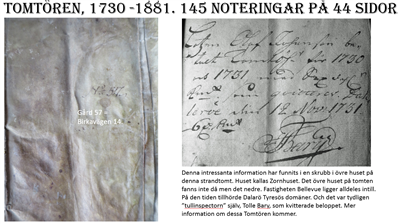 TOMTÖREN, 1730 -1881. 145 NOTERINGAR PÅ 44 SIDOR
No 57.
Gård 57 =
Birkavägen 14
Olof Johansson
för 1730
1731 med
12 Nov: 1731.
Denna intressanta information har funnits i en skrubb i övre huset på
denna strandtomt. Huset kallas Zornhuset. Det övre huset på tomten
fanns inte då men det nedre. Fastigheten Bellevue ligger alldeles intill.
På den tiden tillhörde Dalarö Tyresös domäner. Och det var tydligen
"tullinspectorn" själv, Tolle Barv, som kvitterade beloppet. Mer
information om dessa Tomtören kommer.